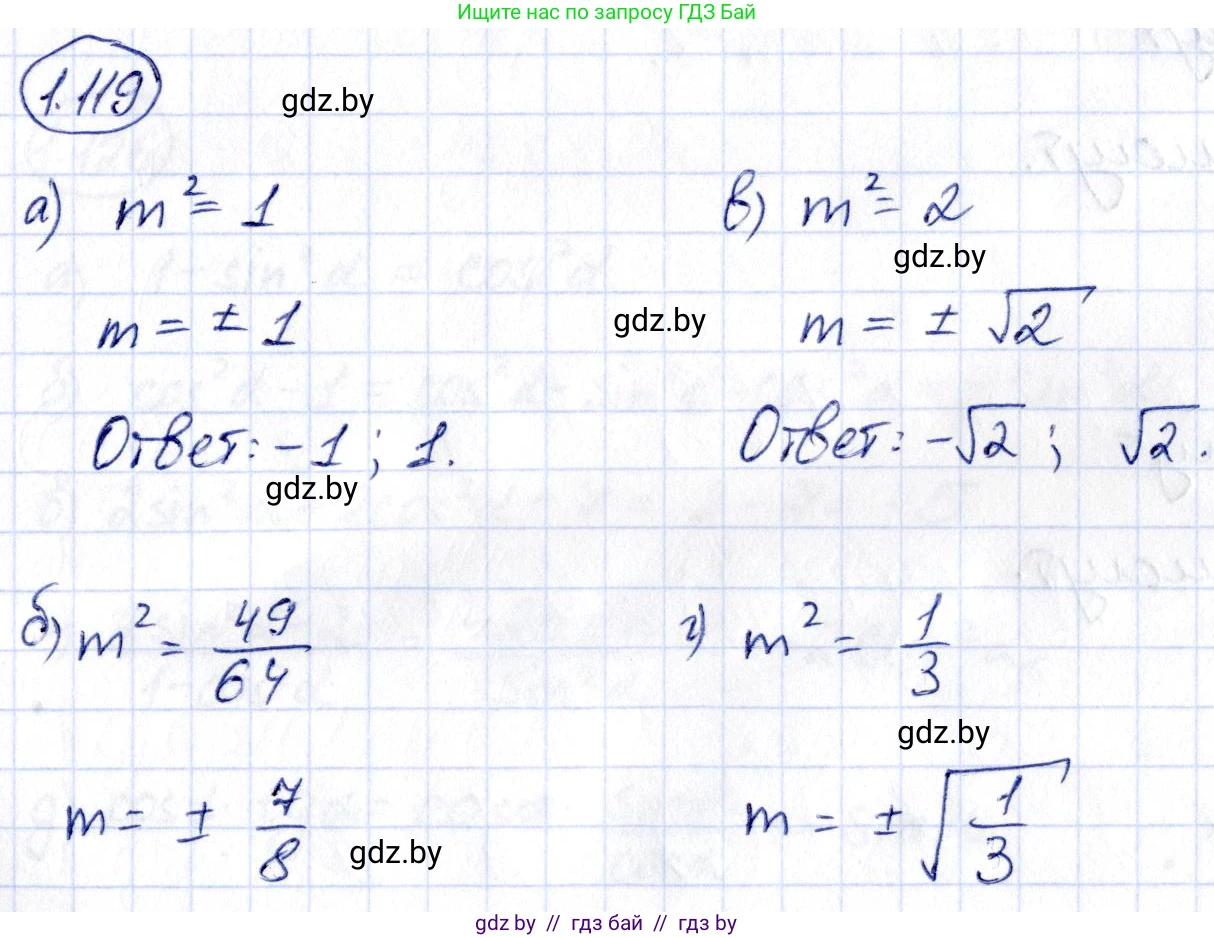 Ищите нас по запросу ГДЗ Бай
1.119
gdz.by
а) m² = 1
m = ± 1
Ответ: -1 ; 1.
gdz.by
в) m² = 2
gdz.by
gdz.by
m = ± √2
Ответ: -√2 ; √2.
б) m² = 49/64
m = ± 7/8
gdz.by
г) m² = 1/3
gdz.by
m = ± √1/3
gdz.by // гдз бай // гдз by